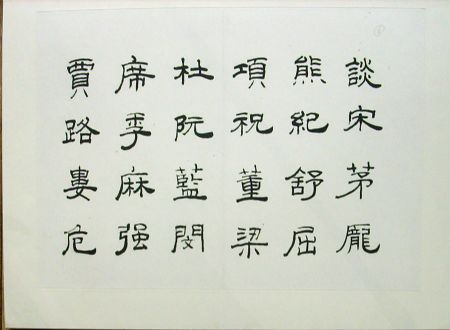 談宋茅龐
熊紀舒屈
項祝董梁
杜阮藍閔
席季麻强
賈路婁危